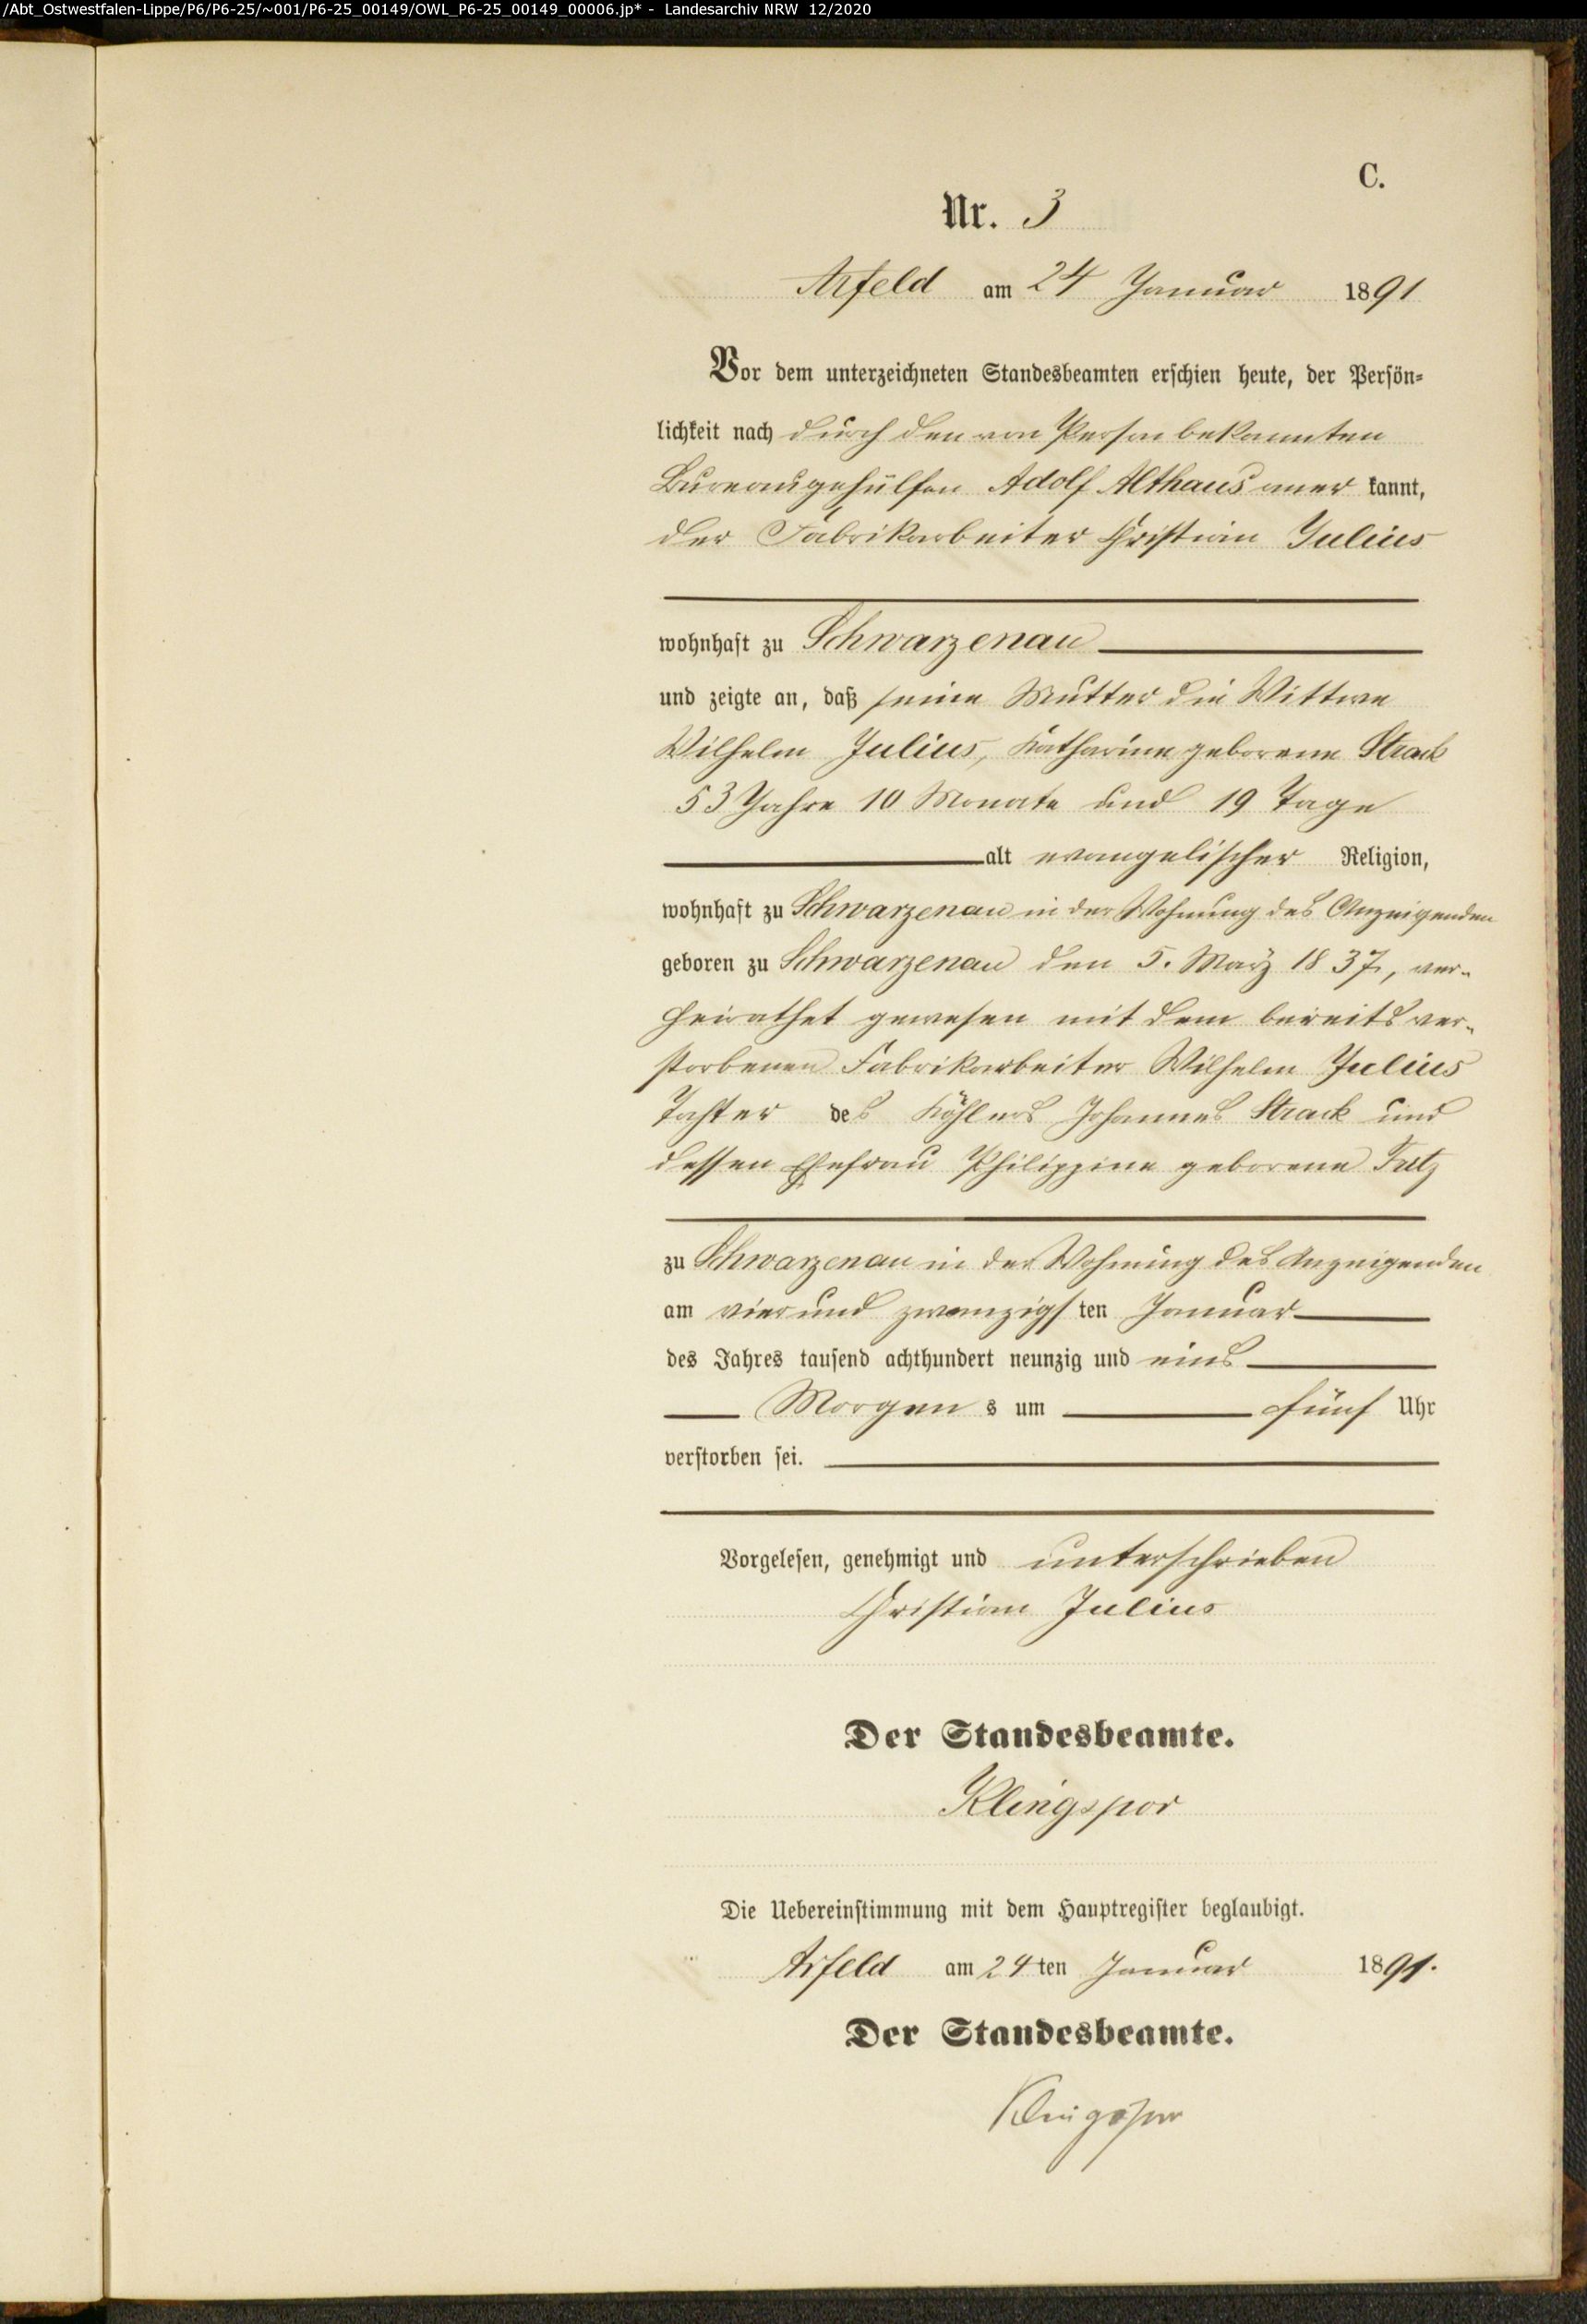 /Abt_Ostwestfalen-Lippe/P6/P6-25/~001/P6-25_00149/OWL_P6-25_00149_00006.jp* - Landesarchiv NRW 12/2020
C.
Nr. 3
Arfeld am 24 Januar 1891
Vor dem unterzeichneten Standesbeamten erschien heute, der Persön-
lichkeit nach durch den von Person bekannten
Bureaugehülfen Adolf Althaus aner kannt,
der Fabrikarbeiter Christian Julius
wohnhaft zu Schwarzenau
und zeigte an, daß seine Mutter die Wittwe
Wilhelm Julius, Katharine geborene Strack
53 Jahre 10 Monate und 19 Tage
alt evangelischer Religion,
wohnhaft zu Schwarzenau in der Wohnung des Anzeigenden
geboren zu Schwarzenau den 5. März 1837, ver-
heirathet gewesen mit dem bereits ver-
storbenen Fabrikarbeiter Wilhelm Julius
Tochter des Köhlers Johannes Strack und
dessen Ehefrau Philippine geborene
zu Schwarzenau in der Wohnung des Anzeigenden
am vierund zwanzigsten Januar
des Jahres tausend achthundert neunzig und eins
Morgens um fünf Uhr
verstorben sei.
Vorgelesen, genehmigt und unterschrieben
Christian Julius
Der Standesbeamte.
Klingspor
Die Uebereinstimmung mit dem Hauptregister beglaubigt.
Arfeld am 24ten Januar 1891.
Der Standesbeamte.
Klingspor